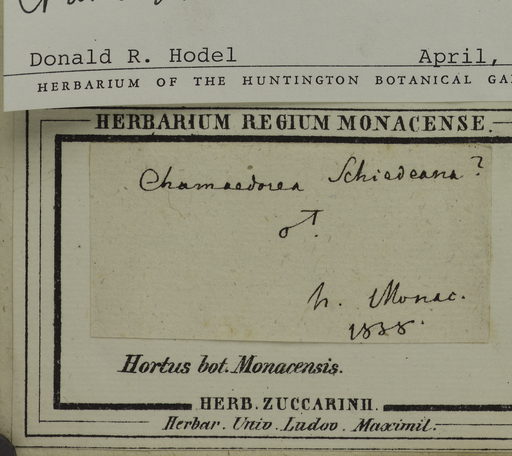 Donald R. Hodel April,
HERBARIUM OF THE HUNTINGTON BOTANICAL GA
HERBARIUM REGIUM MONACENSE.
Chamaedorea Schiedeana?
♂.
h. Monac.
1838.
Hortus bot. Monacensis.
HERB. ZUCCARINII.
Herbar. Univ. Ludov. Maximil.